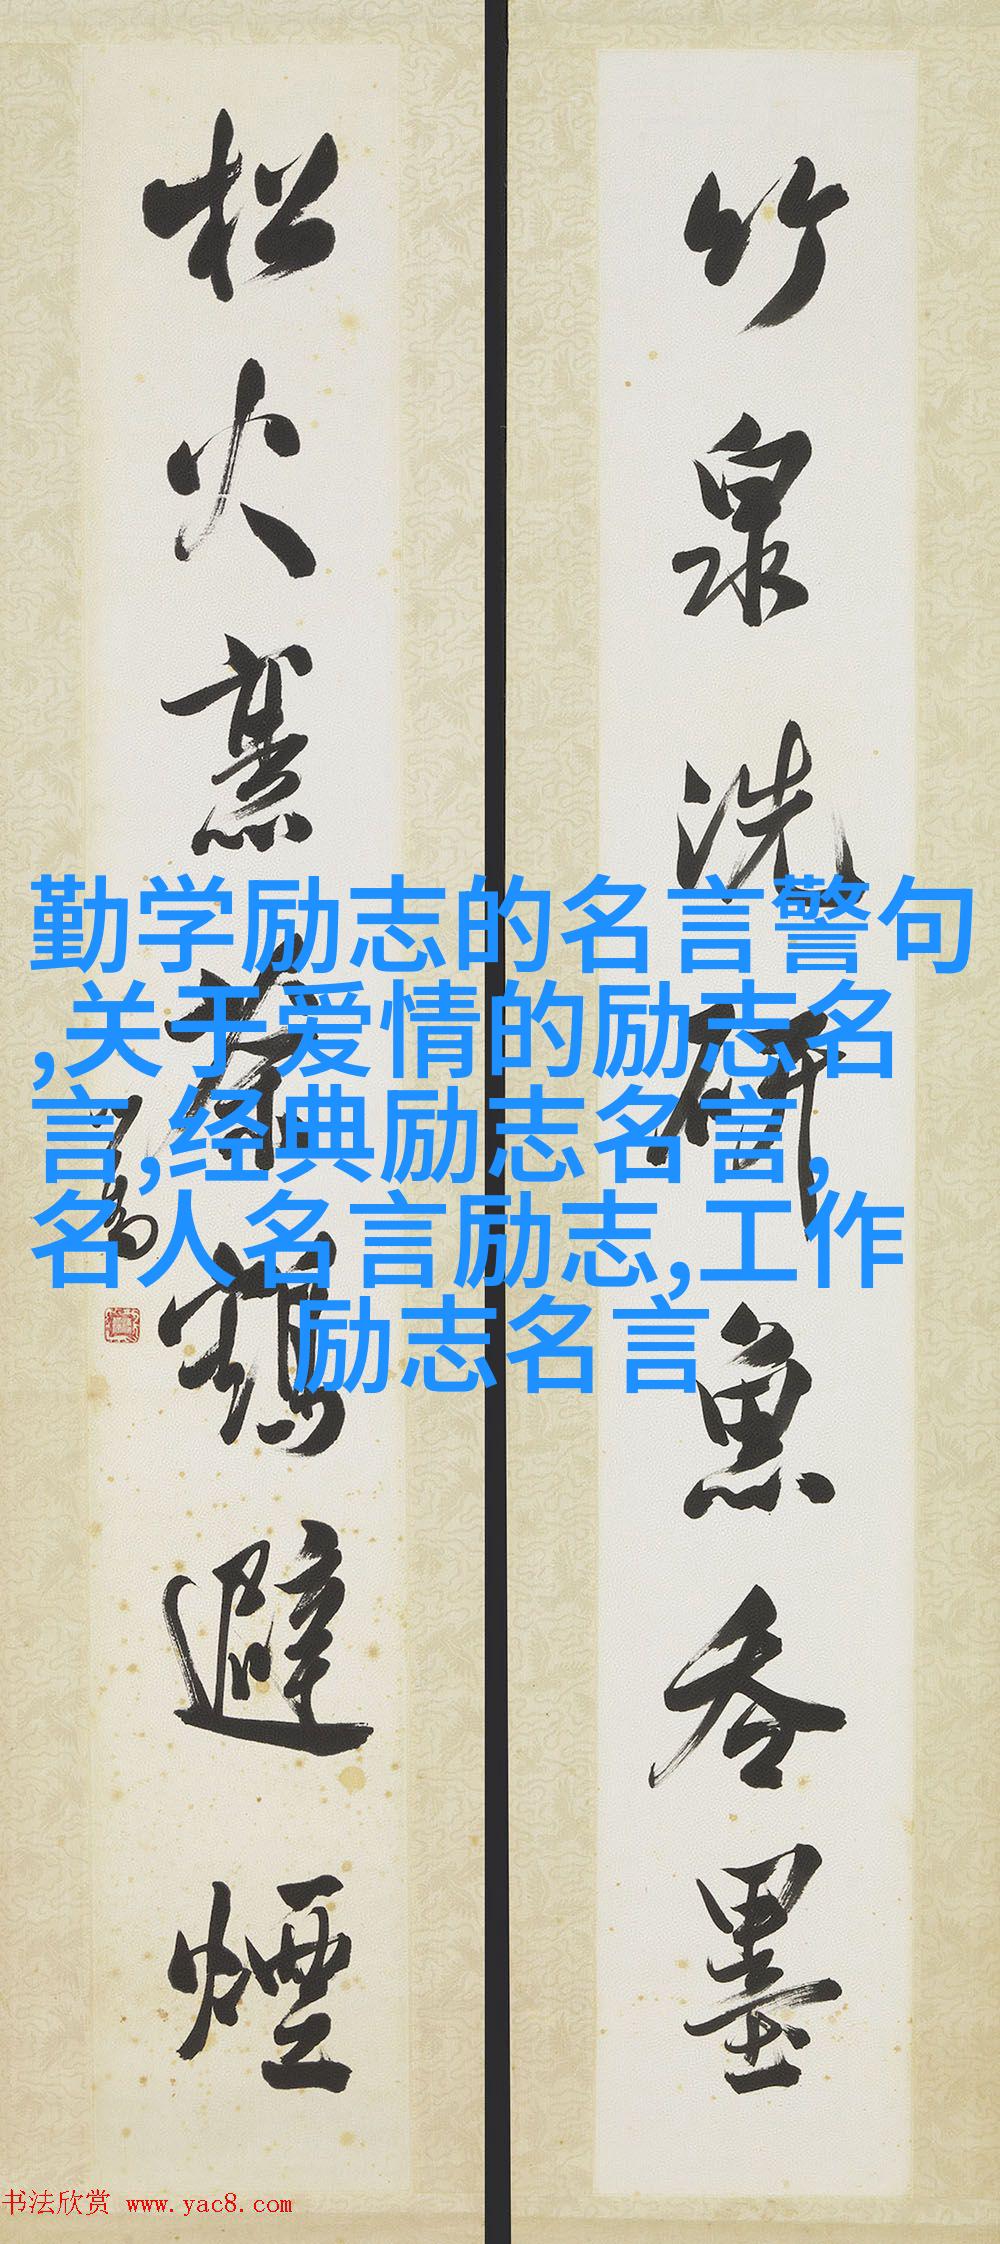 竹泉洗研魚吞墨
松火烹茶鶴避煙
勤学励志的名言警句
,关于爱情的励志名
言,经典励志名言,
名人名言励志,工作
励志名言
书法欣赏 www.yac8.com